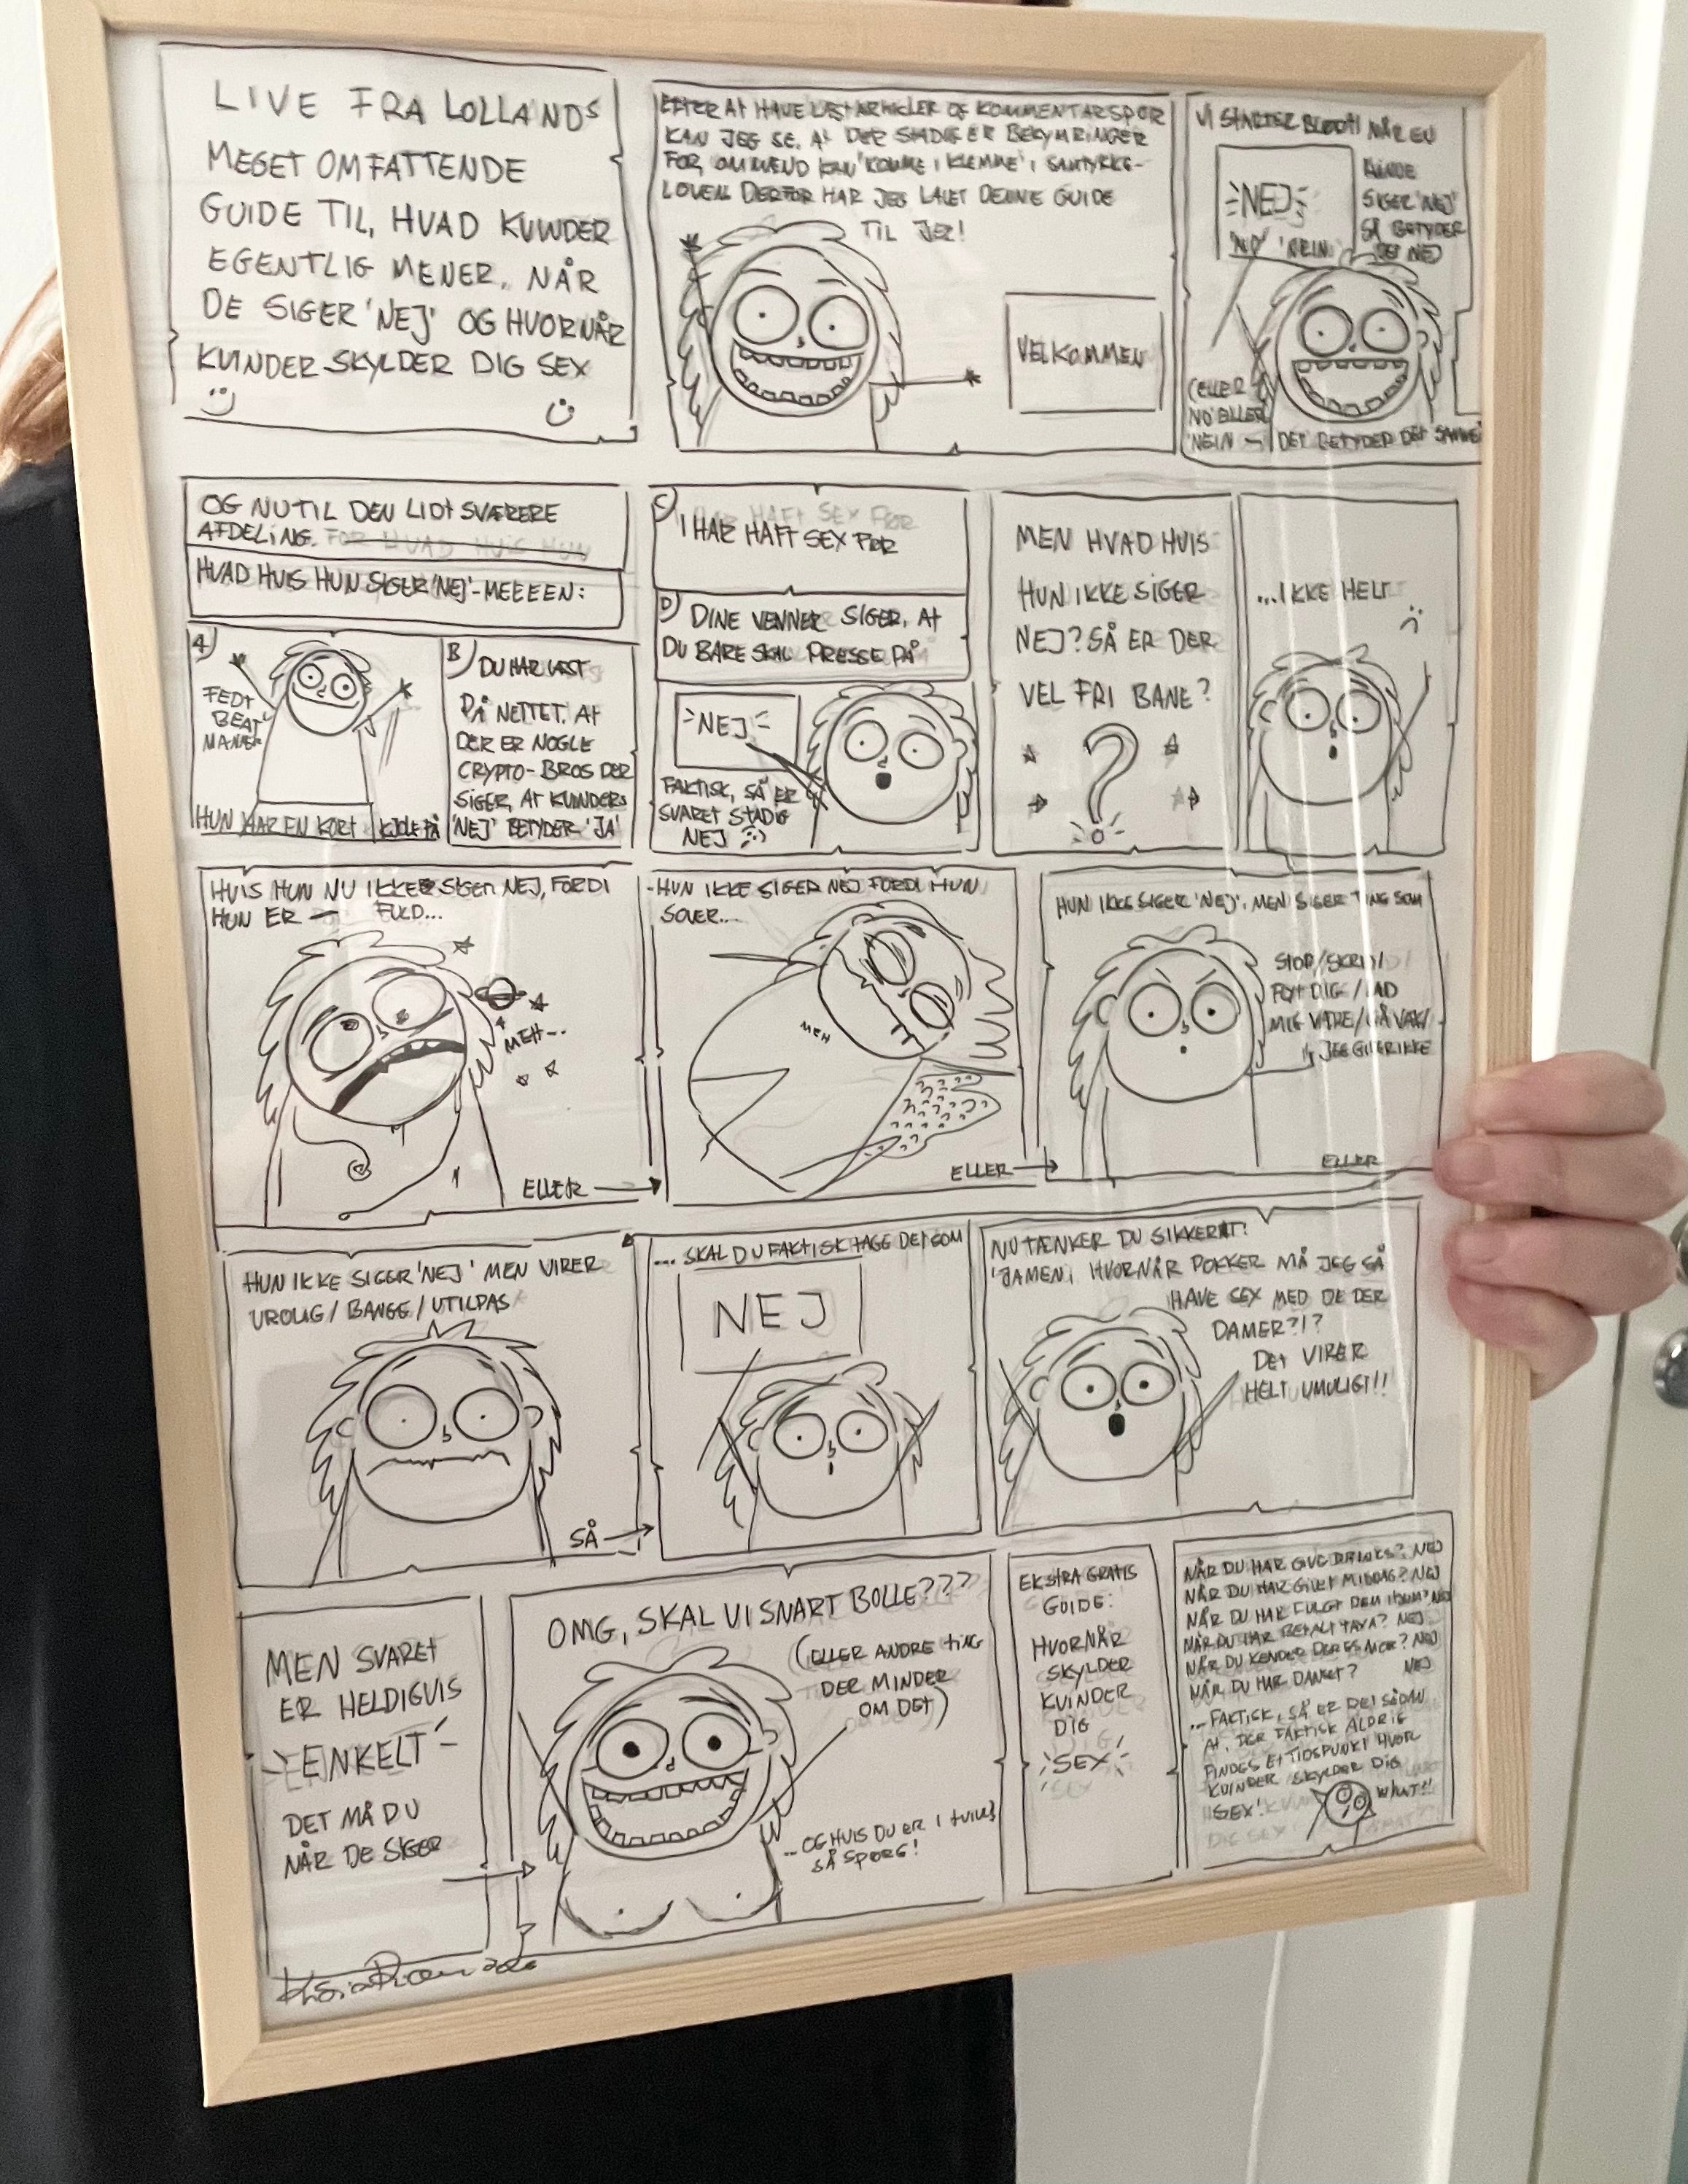 LIVE FRA LOLLANDS
MEGET OMFATTENDE
GUIDE TIL, HVAD KVINDER
EGENTLIG MENER, NÅR
DE SIGER 'NEJ' OG HVORNÅR
KVINDER SKYLDER DIG SEX
EFTER AT HAVE LÆST ARTIKLER OG KOMMENTARSPOR
KAN JEG SE, AT DER STADIG ER BEKYMRINGER
FOR, OM MÆND KAN 'KOMME I KLEMME' I SAMTYKKE-
LOVEN. DERFOR HAR JEG LAVET DENNE GUIDE
TIL JER!
VELKOMMEN
VI STARTER BLØDT! NÅR EN
KVINDE
SIGER 'NEJ'
SÅ BETYDER
DET NEJ
NEJ
'NO' 'NEIN'
(ELLER
'NO' ELLER
'NEIN -
DET BETYDER DET SAMME)
OG NU TIL DEN LIDT SVÆRERE
AFDELING. FOR HVAD HVIS HUN
HVAD HVIS HUN SIGER 'NEJ' - MEEEEN:
A)
FEDT
BEAT
MANER
HUN HAR EN KORT KJOLE PÅ
B) DU HAR LÆST
PÅ NETTET, AT
DER ER NOGLE
CRYPTO-BROS DER
SIGER, AT KVINDERS
'NEJ' BETYDER 'JA'
C) I HAR HAFT SEX FØR
D) DINE VENNER SIGER, AT
DU BARE SKAL PRESSE PÅ
NEJ
FAKTISK, SÅ ER
SVARET STADIG
NEJ :)
MEN HVAD HVIS
HUN IKKE SIGER
NEJ? SÅ ER DER
VEL FRI BANE?
?
...IKKE HELT
HVIS HUN NU IKKE SIGER NEJ, FORDI
HUN ER — FULD...
MEH...
ELLER
-HUN IKKE SIGER NEJ FORDI HUN
SOVER...
MEH
ELLER
HUN IKKE SIGER 'NEJ', MEN SIGER TING SOM
STOP/SKRID/
FØJT DIG/LAD
MIG VÆRE/GÅ VÆK/
JEG GIDER IKKE
ELLER
HUN IKKE SIGER 'NEJ' MEN VIRER
UROLIG/BANGE/UTILPAS
SÅ
... SKAL DU FAKTISK TAGE DET SOM
NEJ
NU TÆNKER DU SIKKERT:
'JAMEN, HVORNÅR POKKER MÅ JEG SÅ
HAVE SEX MED DE DER
DAMER?!?
DET VIRER
HELT UMULIGT!!
MEN SVARET
ER HELDIGVIS
ENKELT
DET MÅ DU
NÅR DE SIGER
OMG, SKAL VI SNART BOLLE???
(ELLER ANDRE TING
DER MINDER
OM DET)
...OG HVIS DU ER I TVIVL
SÅ SPØRG!
EKSTRA GRATIS
GUIDE:
HVORNÅR
SKYLDER
KVINDER
DIG
SEX
NÅR DU HAR GIVET DRINKS? NEJ
NÅR DU HAR GIVET MIDDAG? NEJ
NÅR DU HAR FULGT DEM HJEM? NEJ
NÅR DU HAR BETALT TAXA? NEJ
NÅR DU KENDER DERES MOR? NEJ
NÅR DU HAR DANSET? NEJ
...FAKTISK, SÅ ER DET SÅDAN
AT, DER FAKTISK ALDRIG
FINDES ET TIDSPUNKT HVOR
KVINDER SKYLDER DIG
'SEX'.
WHAT!!